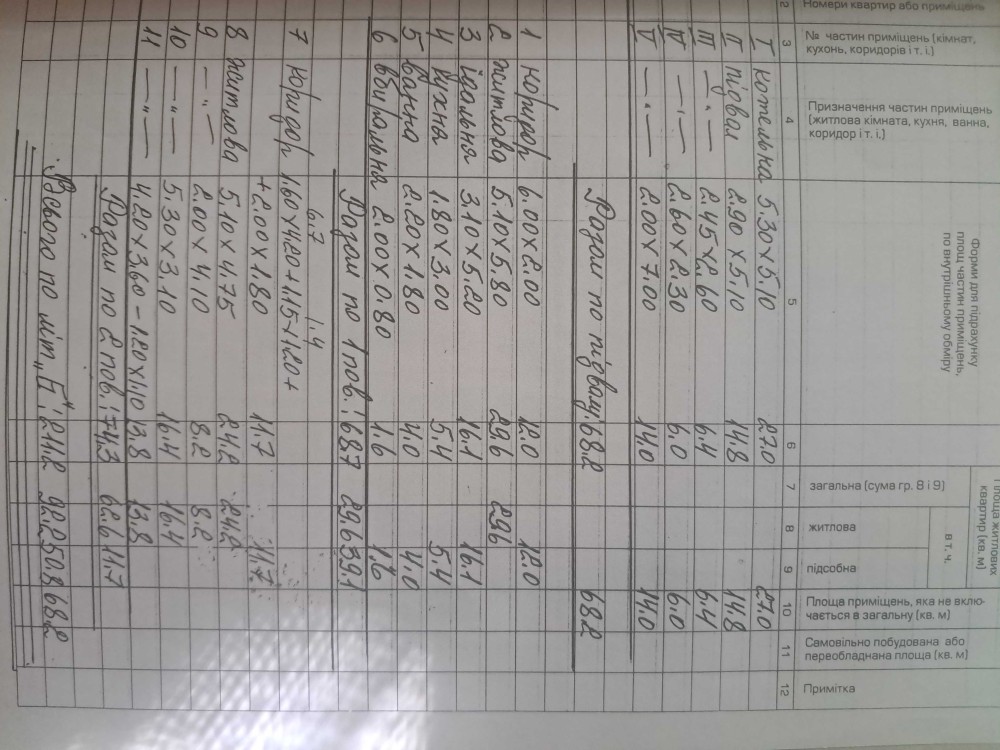 Номери квартир або приміщень
№ частин приміщень (кімнат, кухонь, коридорів і т. і.)
Призначення частин приміщень (житлова кімната, кухня, ванна, коридор і т. і.)
Форми для підрахунку площ частин приміщень, по внутрішньому обміру
Площа житлових квартир (кв. м)
загальна (сума гр. 8 і 9)
в т. ч.
житлова
підсобна
Площа приміщень, яка не включається в загальну (кв. м)
Самовільно побудована або переобладнана площа (кв. м)
Примітка
2 3 4 5 6 7 8 9 10 11 12
I котельна 5.30х5.10 27.0 27.0
II підвал 2.90х5.10 14.8 14.8
III —"— 2.45х2.60 6.4 6.4
IV —"— 2.60х2.30 6.0 6.0
V —"— 2.00х7.00 14.0 14.0
Разом по підвалу: 68.2 68.2
1 коридор 6.00х2.00 12.0 12.0
2 житлова 5.10х5.80 29.6 29.6
3 їдальня 3.10х5.20 16.1 16.1
4 кухня 1.80х3.00 5.4 5.4
5 ванна 2.20х1.80 4.0 4.0
6 вбиральна 2.00х0.80 1.6 1.6
Разом по 1 пов.: 68.7 29.6 39.1
6.7 1.4
7 коридор 1.60х4.20+1.15х1.20+
+2.00х1.80 11.7 11.7
8 житлова 5.10х4.75 24.2 24.2
9 —"— 2.00х4.10 8.2 8.2
10 —"— 5.30х3.10 16.4 16.4
11 —"— 4.20х3.60-1.20х1.10 13.8 13.8
Разом по 2 пов.: 74.3 62.6 11.7
Всього по літ. „Б": 211.2 92.2 50.8 68.2